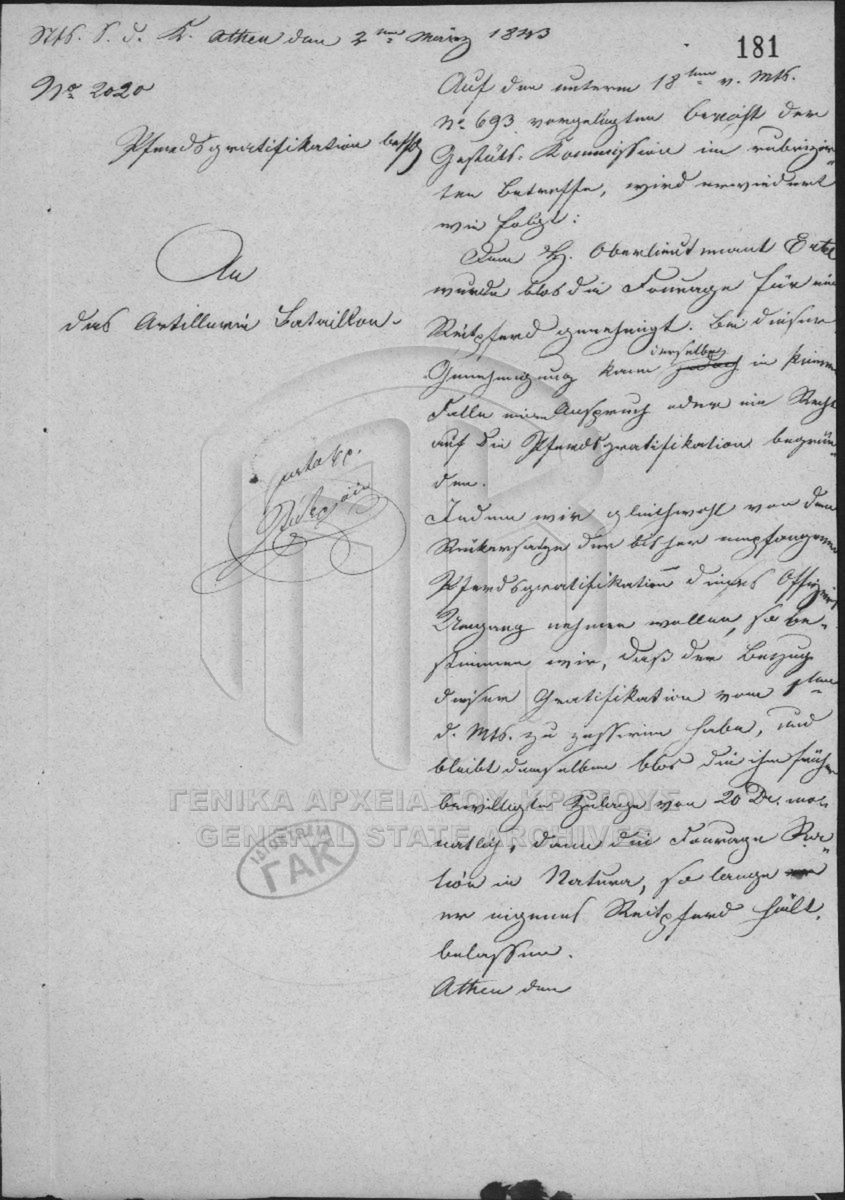 Mts. S. d. K. Athen den 2ten März 1843
181
No 2020
Pferdsgratifikation betfd
An
das Artillerie Bataillon.
Auf den unterm 18ten v. Mts.
No 693 vorgelegten Bericht der
Gestüts-Kommission im rubrizir-
ten Betreffe, wird erwiedert
wie folgt:
Dem H. Oberlieutenant
wurde blos die Fourage für ein
Reitpferd genehmigt. Bei dieser
Genehmigung kann derselbe jedoch in keinem
Falle einen Anspruch oder ein Recht
auf die Pferdsgratifikation begrün-
den.
Indem wir gleichwohl von dem
Rückersatze der bisher empfangenen
Pferdsgratifikation dieses Offiziers
Umgang nehmen wollen, so be-
stimmen wir, daß der Bezug
dieser Gratifikation vom 1ten
d. Mts. zu zessiren habe, und
bleibt demselben blos die ihm früher
bewilligte Zulage von 20 Dr. mo-
natlich, dann die Fourage Ra-
tion in Natura, so lange
er eigenes Reitpferd hält,
belassen.
Athen den
ΓΕΝΙΚΑ ΑΡΧΕΙΑ ΤΟΥ ΚΡΑΤΟΥΣ
GENERAL STATE ARCHIVES
ΓΑΚ